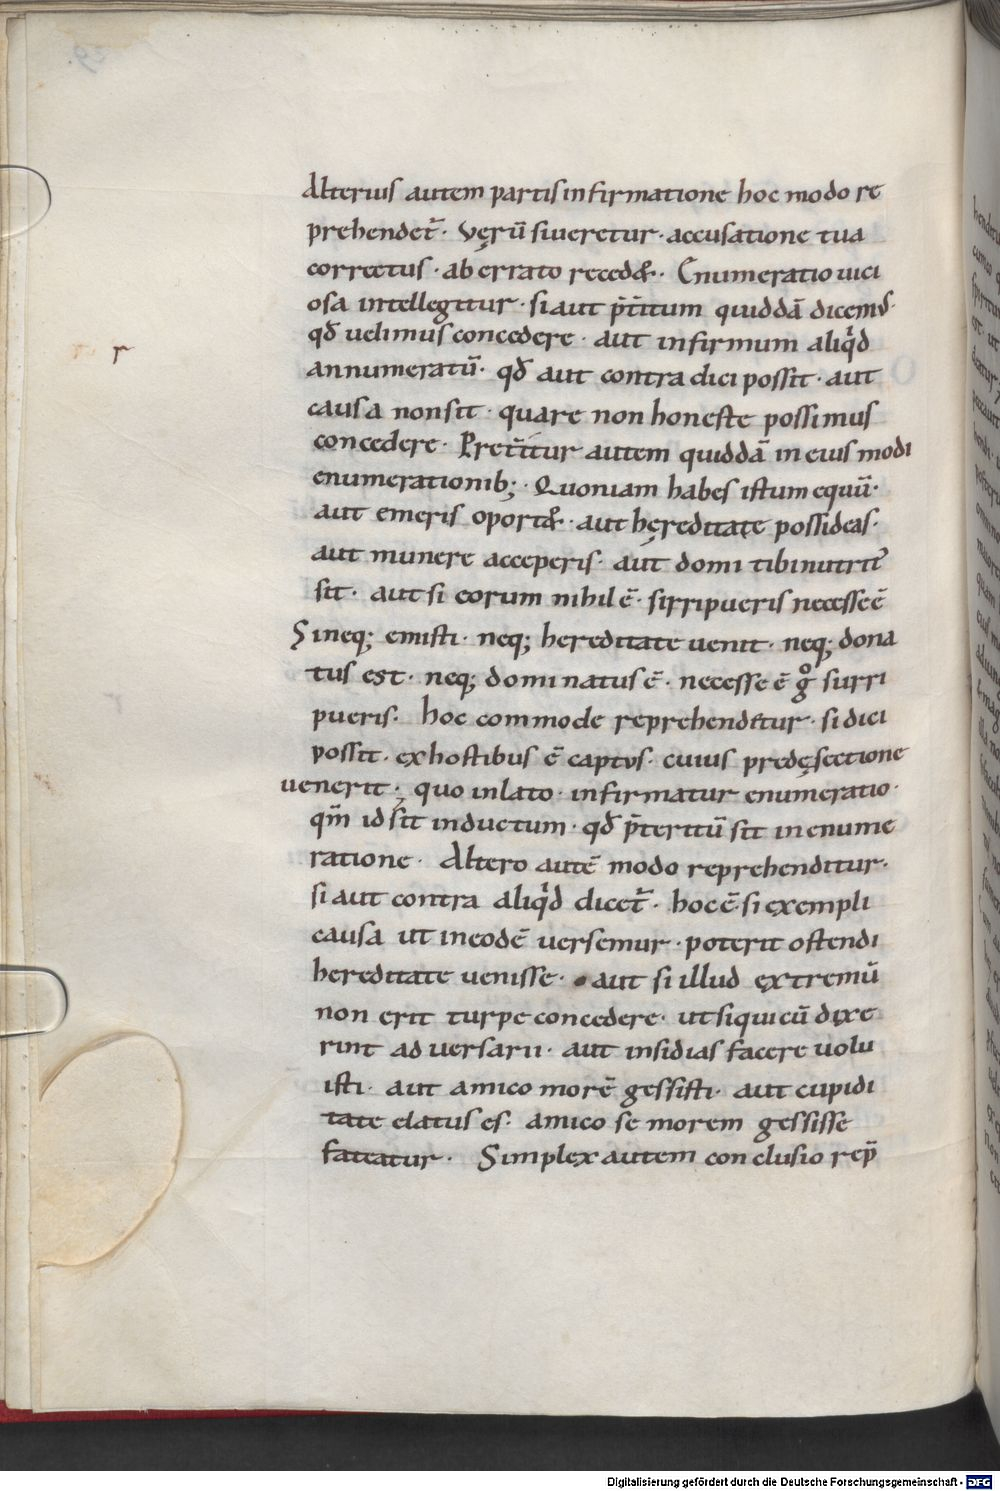 Alterius autem partis infirmatione hoc modo re
prehendet̃. Vęrũ si ueretur · accusatione tua
correctus · ab errato reced&. Enumeratio uici
osa intellegitur · si aut p̃t̃itum quiddã dicemꝰ·
qđ uelimus concedere · aut infirmum aliqͥd
annumeratũ · qđ aut contra dici possit · aut
causa non sit · quare non honeste possimus
concedere · Pret̃itur autem quiddã in eius modi
enumerationib; · Quoniam habes istum equũ ·
aut emeris oport& · aut hęreditate possideas ·
aut munere acceperis · aut domi tibi nutrit᷑
sit · aut si eorum nihil ẽ · sirripueris necesse ẽ
Si neq; emisti · neq; hereditate uenit · neq; dona
tus est · neq; domi natus ẽ · necesse ẽ gͦ surri
pueris · hoc commode reprehendetur · si dici
possit · ex hostibus ẽ captvs · cuius predę sectione
uenerit ; quo inlato · infirmatur enumeratio ·
qm̃ id sit inductum · qđ p̃teritũ sit in enume
ratione · Altero autẽ modo reprehenditur ·
si aut contra aliqͥd dicet̃ · hoc ẽ · si exempli
causa ut in eodẽ uersemur · poterit ostendi
hereditate uenisse · aut si illud extremũ
non erit turpe concedere · ut si qui cũ dixe
rint aduersarii · aut insidias facere uolu
isti · aut amico morẽ gessisti · aut cupidi
tate elatus es · amico se morem gessisse
fateatur · Simplex autem conclusio rep̃
r
29.
Digitalisierung gefördert durch die Deutsche Forschungsgemeinschaft - DFG